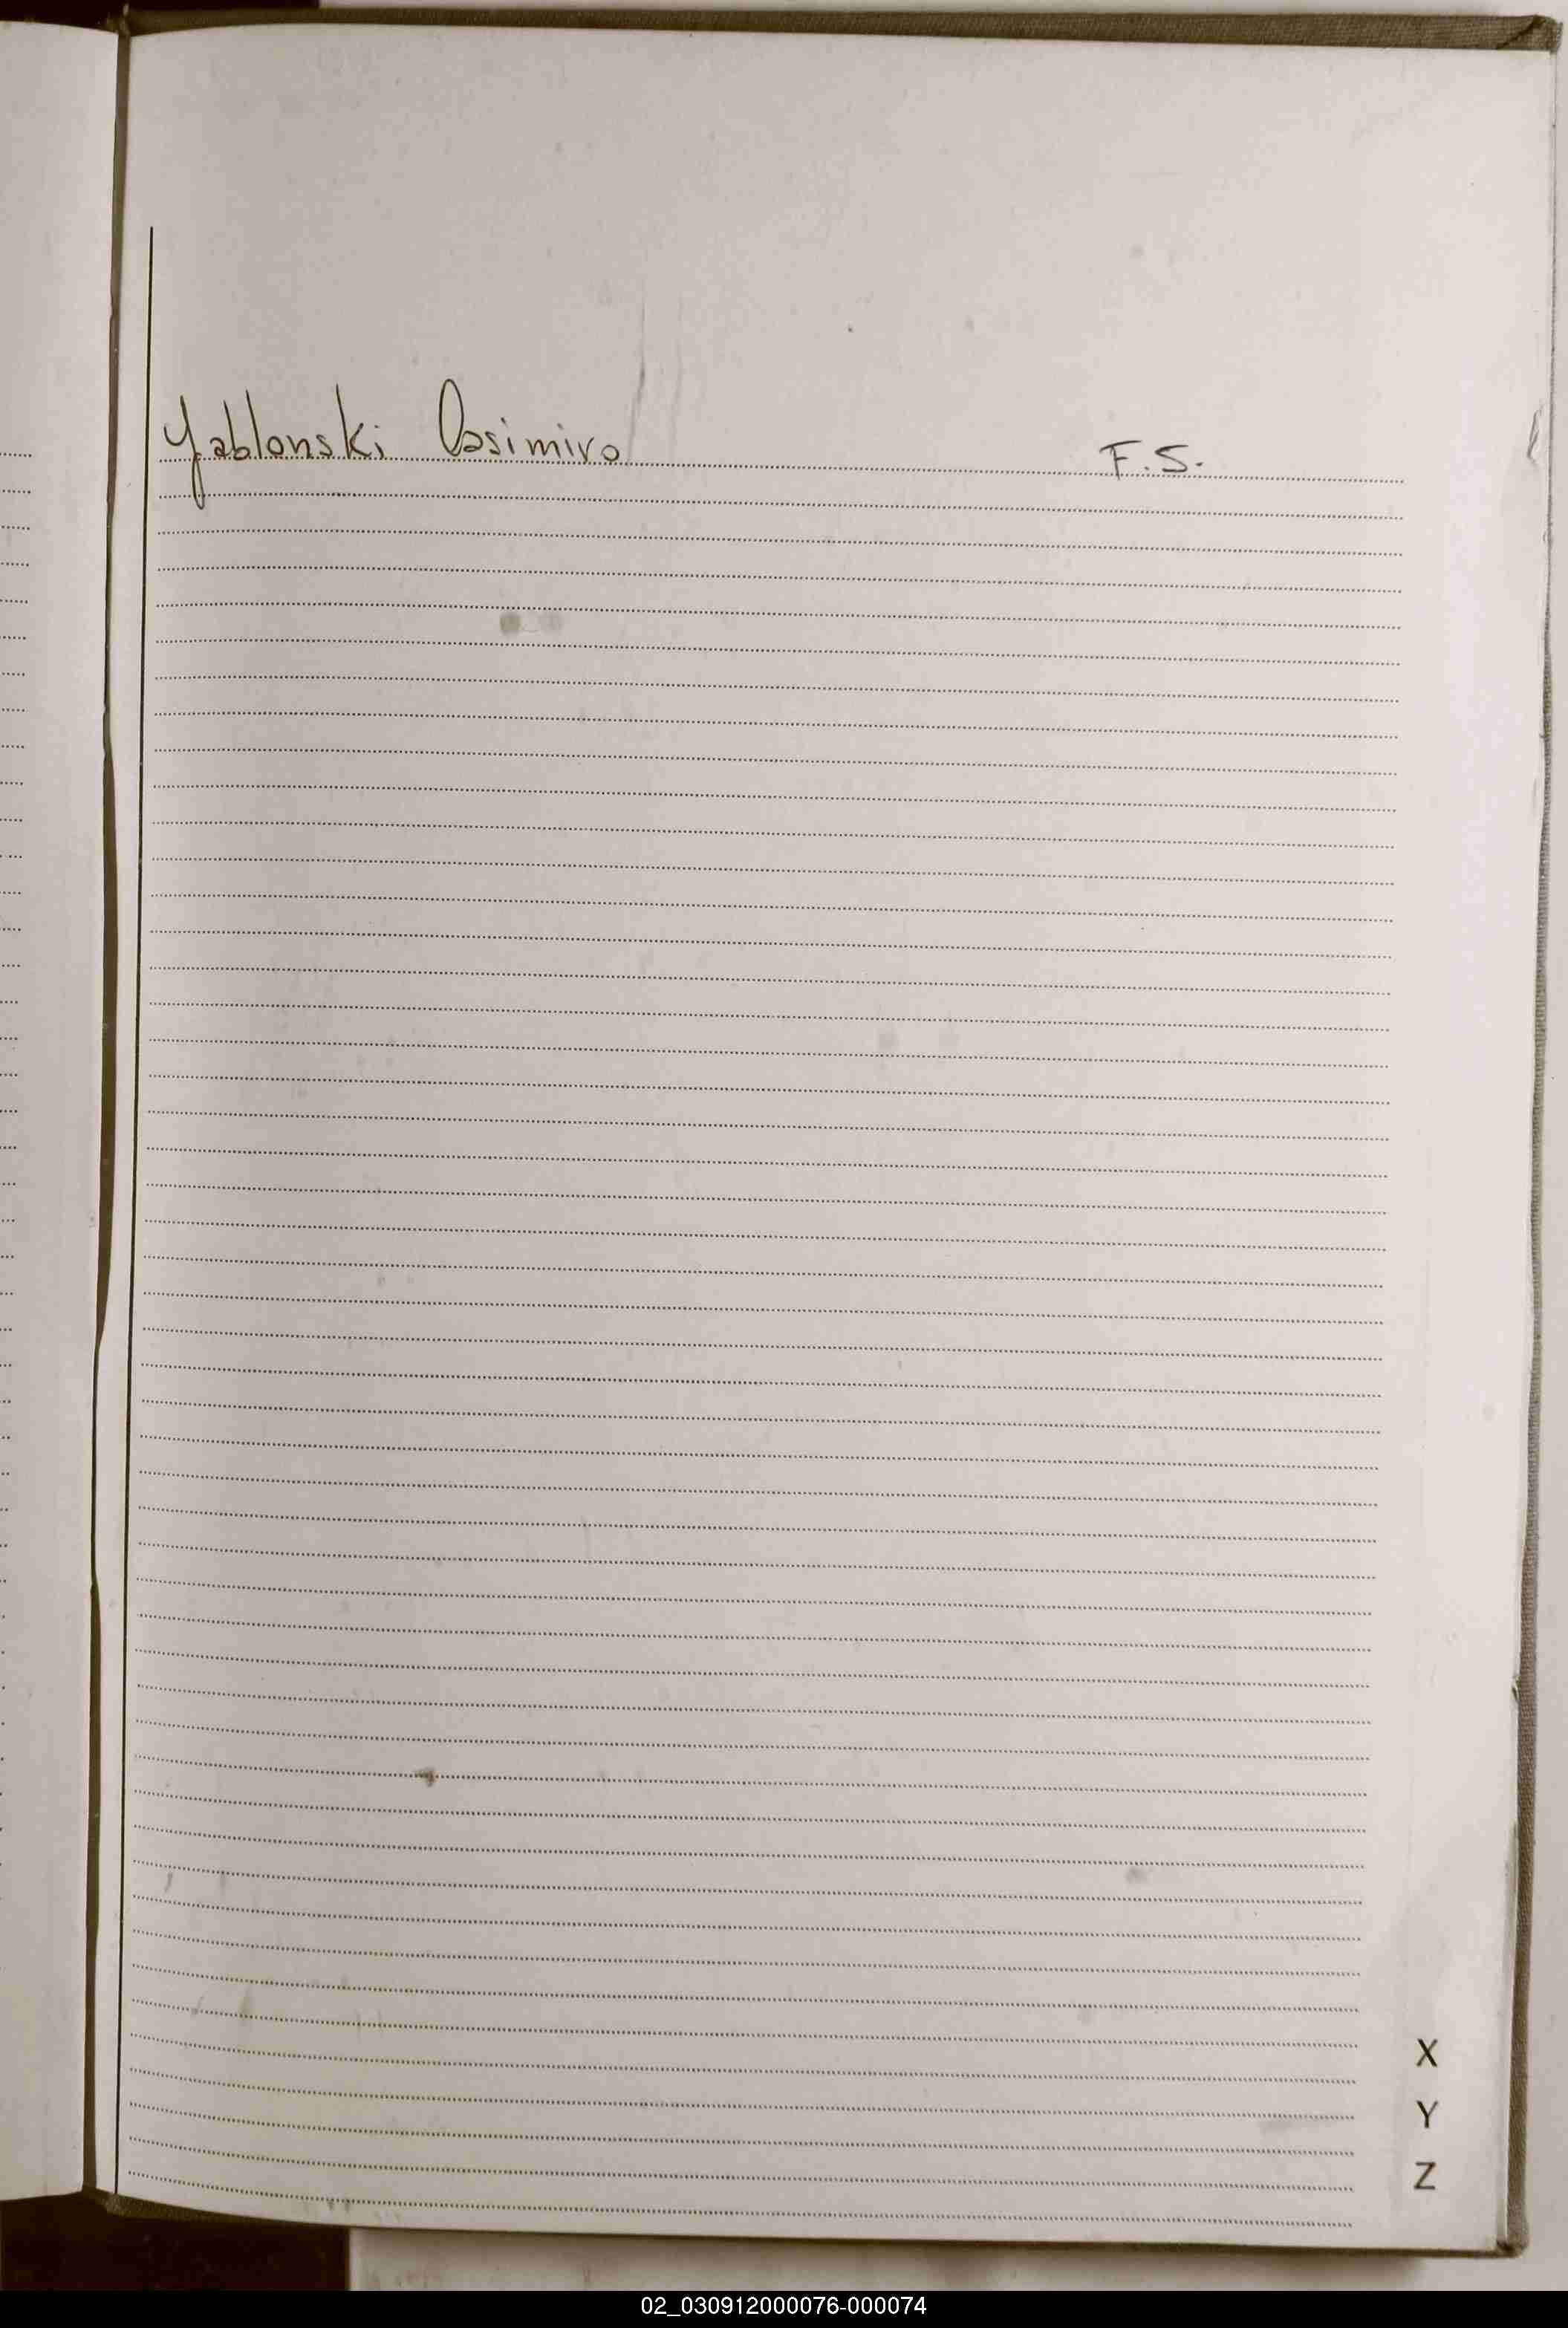 Yablonski Casimiro F.S.
X
Y
Z
02_030912000076-000074